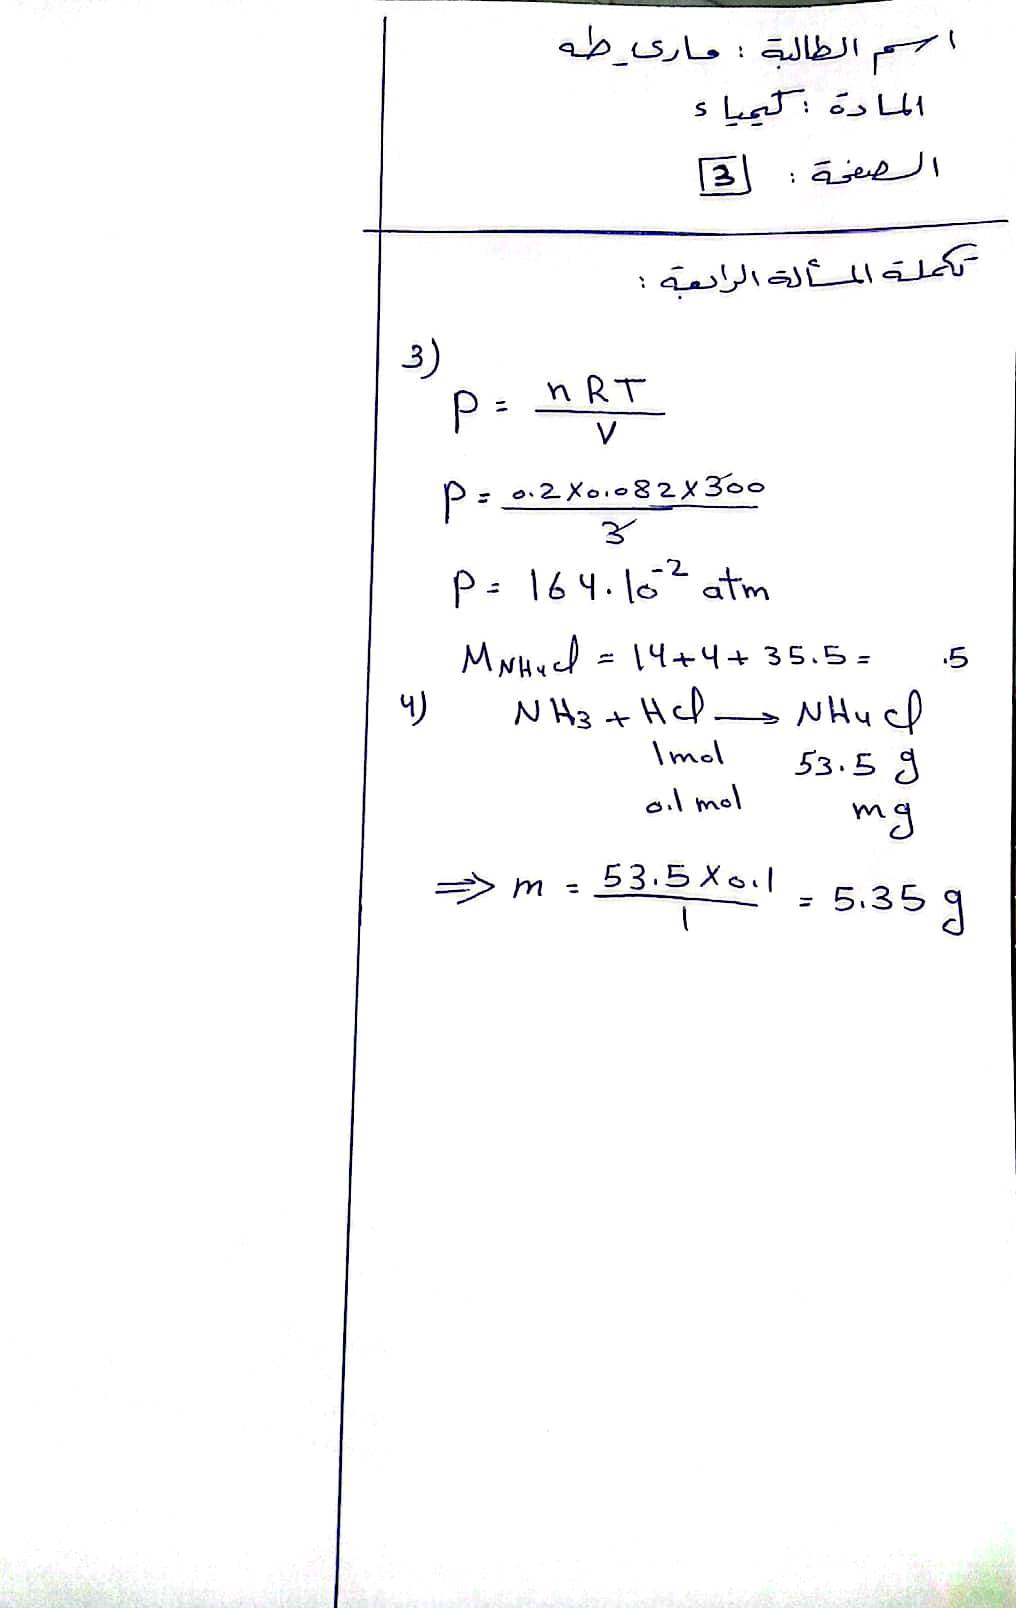 اسم الطالبة : ماري_طه
المادة : كيمياء
الصفحة : 3
تكملة المسألة الرابعة :
3)
P = nRT
V
P = 0.2 X 0.082 X 300
3
P = 164.10⁻² atm
M NH4Cl = 14+4+35.5 = .5
4) NH3 + HCl → NH4Cl
1mol 53.5 g
0.1 mol m g
⇒ m = 53.5 X 0.1 = 5.35 g
1